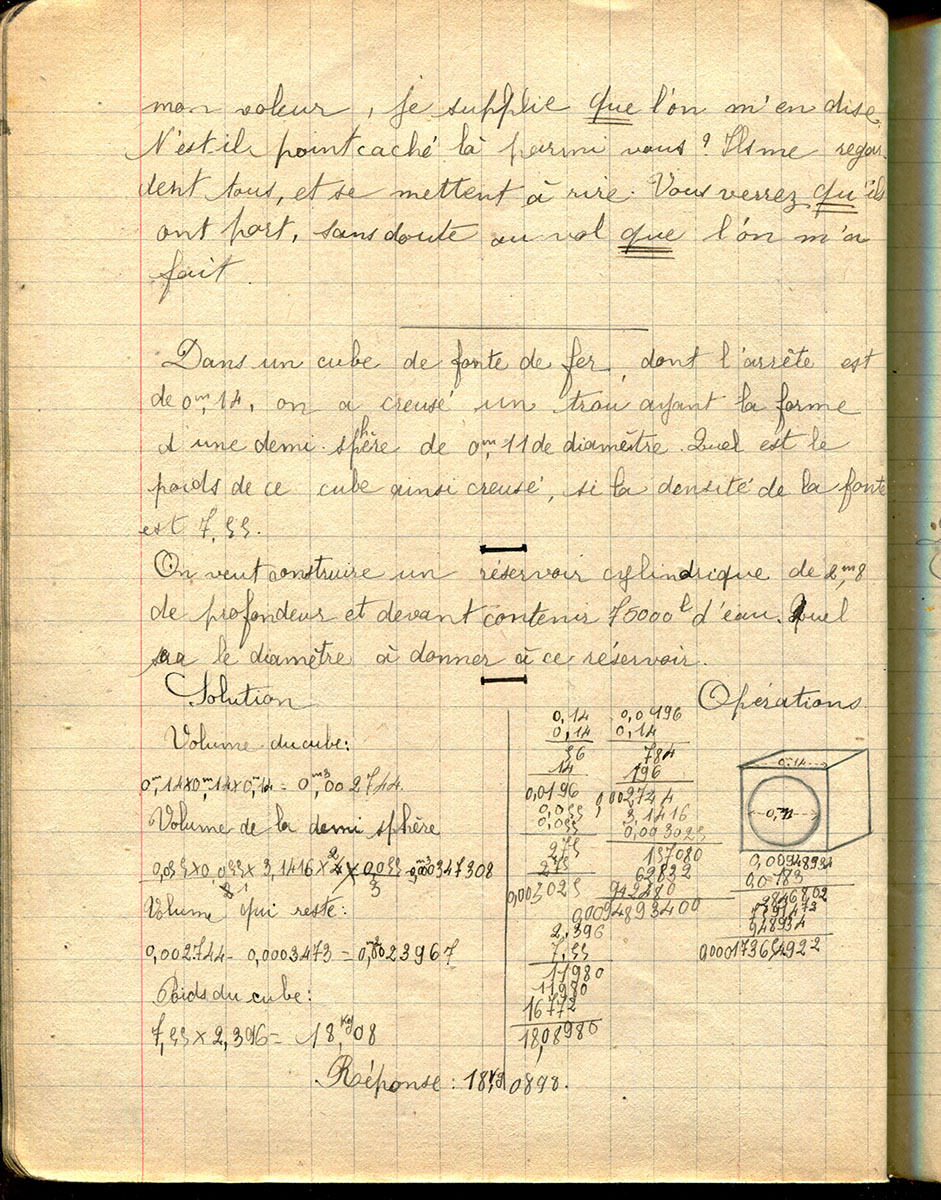 mon voleur, je supplie que l'on m'en dise,
N'est il point caché là parmi vous? Ils me regar-
dent tous, et se mettent à rire. Vous verrez qu'ils
ont part, sans doute au vol que l'on m'a
fait
Dans un cube de fonte de fer, dont l'arrête est
de 0m,14, on a creusé un trou ayant la forme
d'une demi-sphère de 0m,11 de diamêtre. Quel est le
poids de ce cube ainsi creusé, si la densité de la fonte
est 7,55.
On veut construire un réservoir cylindrique de 2m,8
de profondeur et devant contenir 75000l d'eau. Quel
le diamêtre à donner à ce réservoir.
Solution
Opérations
Volume du cube:
0m,14x0m,14x0m,14 = 0m3,002744.
Volume de la demi sphère
0,055x0,055x3,1416x
Volume qui reste:
0,002744-0,0003473 =
Poids du cube:
7,55x2,396= 18,Kg08
Réponse: 18
0,14
0,14
56
14
0,0196
0,055
0,055
275
275
0,003025
0,0196
0,14
784
196
0,002744
3,1416
0,003025
157080
62832
942480
0,0094893400
2,396
7,55
11980
11980
16772
18,08980
0,14
0,11
0,00948934
0,0183